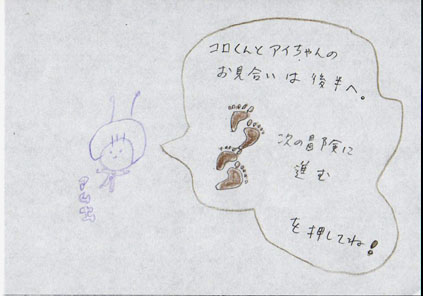 コロくんとアイちゃんの
お見合いは 後半へ。
次の冒険に
進む
を押してね!